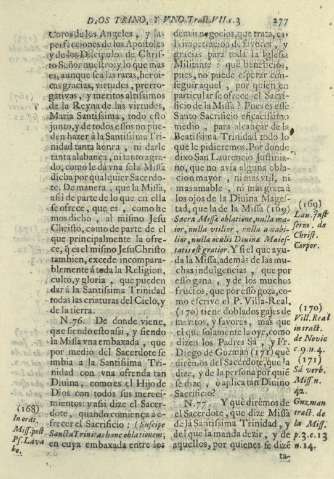 DIOS TRINO, Y VNO. Tract. VII. c. 3 277
Coros de los Angeles, y las
perfecciones de los Apostoles
y de los Discipulos de Chris-
to Señor nuestro; y lo que mas
es, aunque sea las raras, heroi-
cas gracias, virtudes, prerro-
gativas, y meritos altissimos
de la Reyna de las virtudes,
Maria Santissima, todo esto
junto, y de todos estos no pue-
den hazer à la Santissima Tri-
nidad tanta honra, ni darle
tanta alabança, ni tanto agra-
do, como le dà vna sola Missa
dicha por qualquier Sacerdo-
te. De manera, que la Missa,
assi de parte de lo que en ella
se ofrece, que es, como he-
mos dicho, al mismo Jesu
Christo, como de parte de el
que principalmente la ofre-
ce, q̃ es el mismo Jesu Christo
tambien, excede incompara-
blemente à toda la Religion,
culto, y gloria, que pueden
dar à la Santissima Trinidad
todas las criaturas del Cielo, y
de la tierra.
N. 76. De donde viene,
que siendo esto assi, y siendo
la Missa vna embaxada, que
por medio del Sacerdote se
embia à la Santissima Tri-
nidad con vna ofrenda tan
Divina, como es el Hijo de
Dios con todos sus mereci-
mientos: y assi dize el Sacer-
dote, quando comiença à o-
frecer el Sacrificio; (Suscipe
Sancta Trinitas hanc oblationem,
en cuya embaxada entre los
(168)
In ordi.
Miss. post
Ps. Lava-
bo.
demàs negocios, que trata, es
la impetracion de favores, y
gracias para toda la Iglesia
Militante: què beneficio,
pues, no puede esperar con-
seguir aquel, por quien en
particular se ofrece el Sacrifi-
cio de la Missa? Pues es este
Santo Sacrificio eficacissimo
medio, para alcançar de la
Beatissima Trinidad todo lo
que le pidieremos. Por donde
dixo San Laurencio Justinia-
no, que no avia alguna obla-
cion mayor, ni mas vtil, ni
mas amable, ni mas grata à
los ojos de la Divina Mages-
tad, que la de la Missa (169)
Sacra Missæ oblatione, nulla ma-
ior, nulla vtilior, nulla amabi-
lior, nulla oculis Divinæ Maies-
tatis est gratior. Y si el que ayu-
da la Missa, ademàs de las mu-
chas indulgencias, que por
esso gana, y de los muchos
frutos, que por esso goza, co-
mo escrive el P. Villa-Real,
(170) tiene doblados gajes de
meritos, y favores, màs que
el que solamente la oye, como
dizen los Padres Sà, y Fr.
Diego de Guzman (171) què
dirèmos del Sacerdote, que la
dize, y de la persona por quiẽ
se dize, ò aplica tan Divino
Sacrificio?
N. 77. Y què dirèmos de
el Sacerdote, que dize Missa
de la Santissima Trinidad, y
del que la manda dezir, y de
aquellos, por quienes se dize
ta-
(169)
Lau. Just
de
Christ.
Corpor.
(170)
Vill. Real
in tract.
de Novic
c. 9. n. 4.
(171)
Sà verb.
Missa n.
42.
Guzman
tract. de
la Miss.
p. 3. c. 13
n. 14.